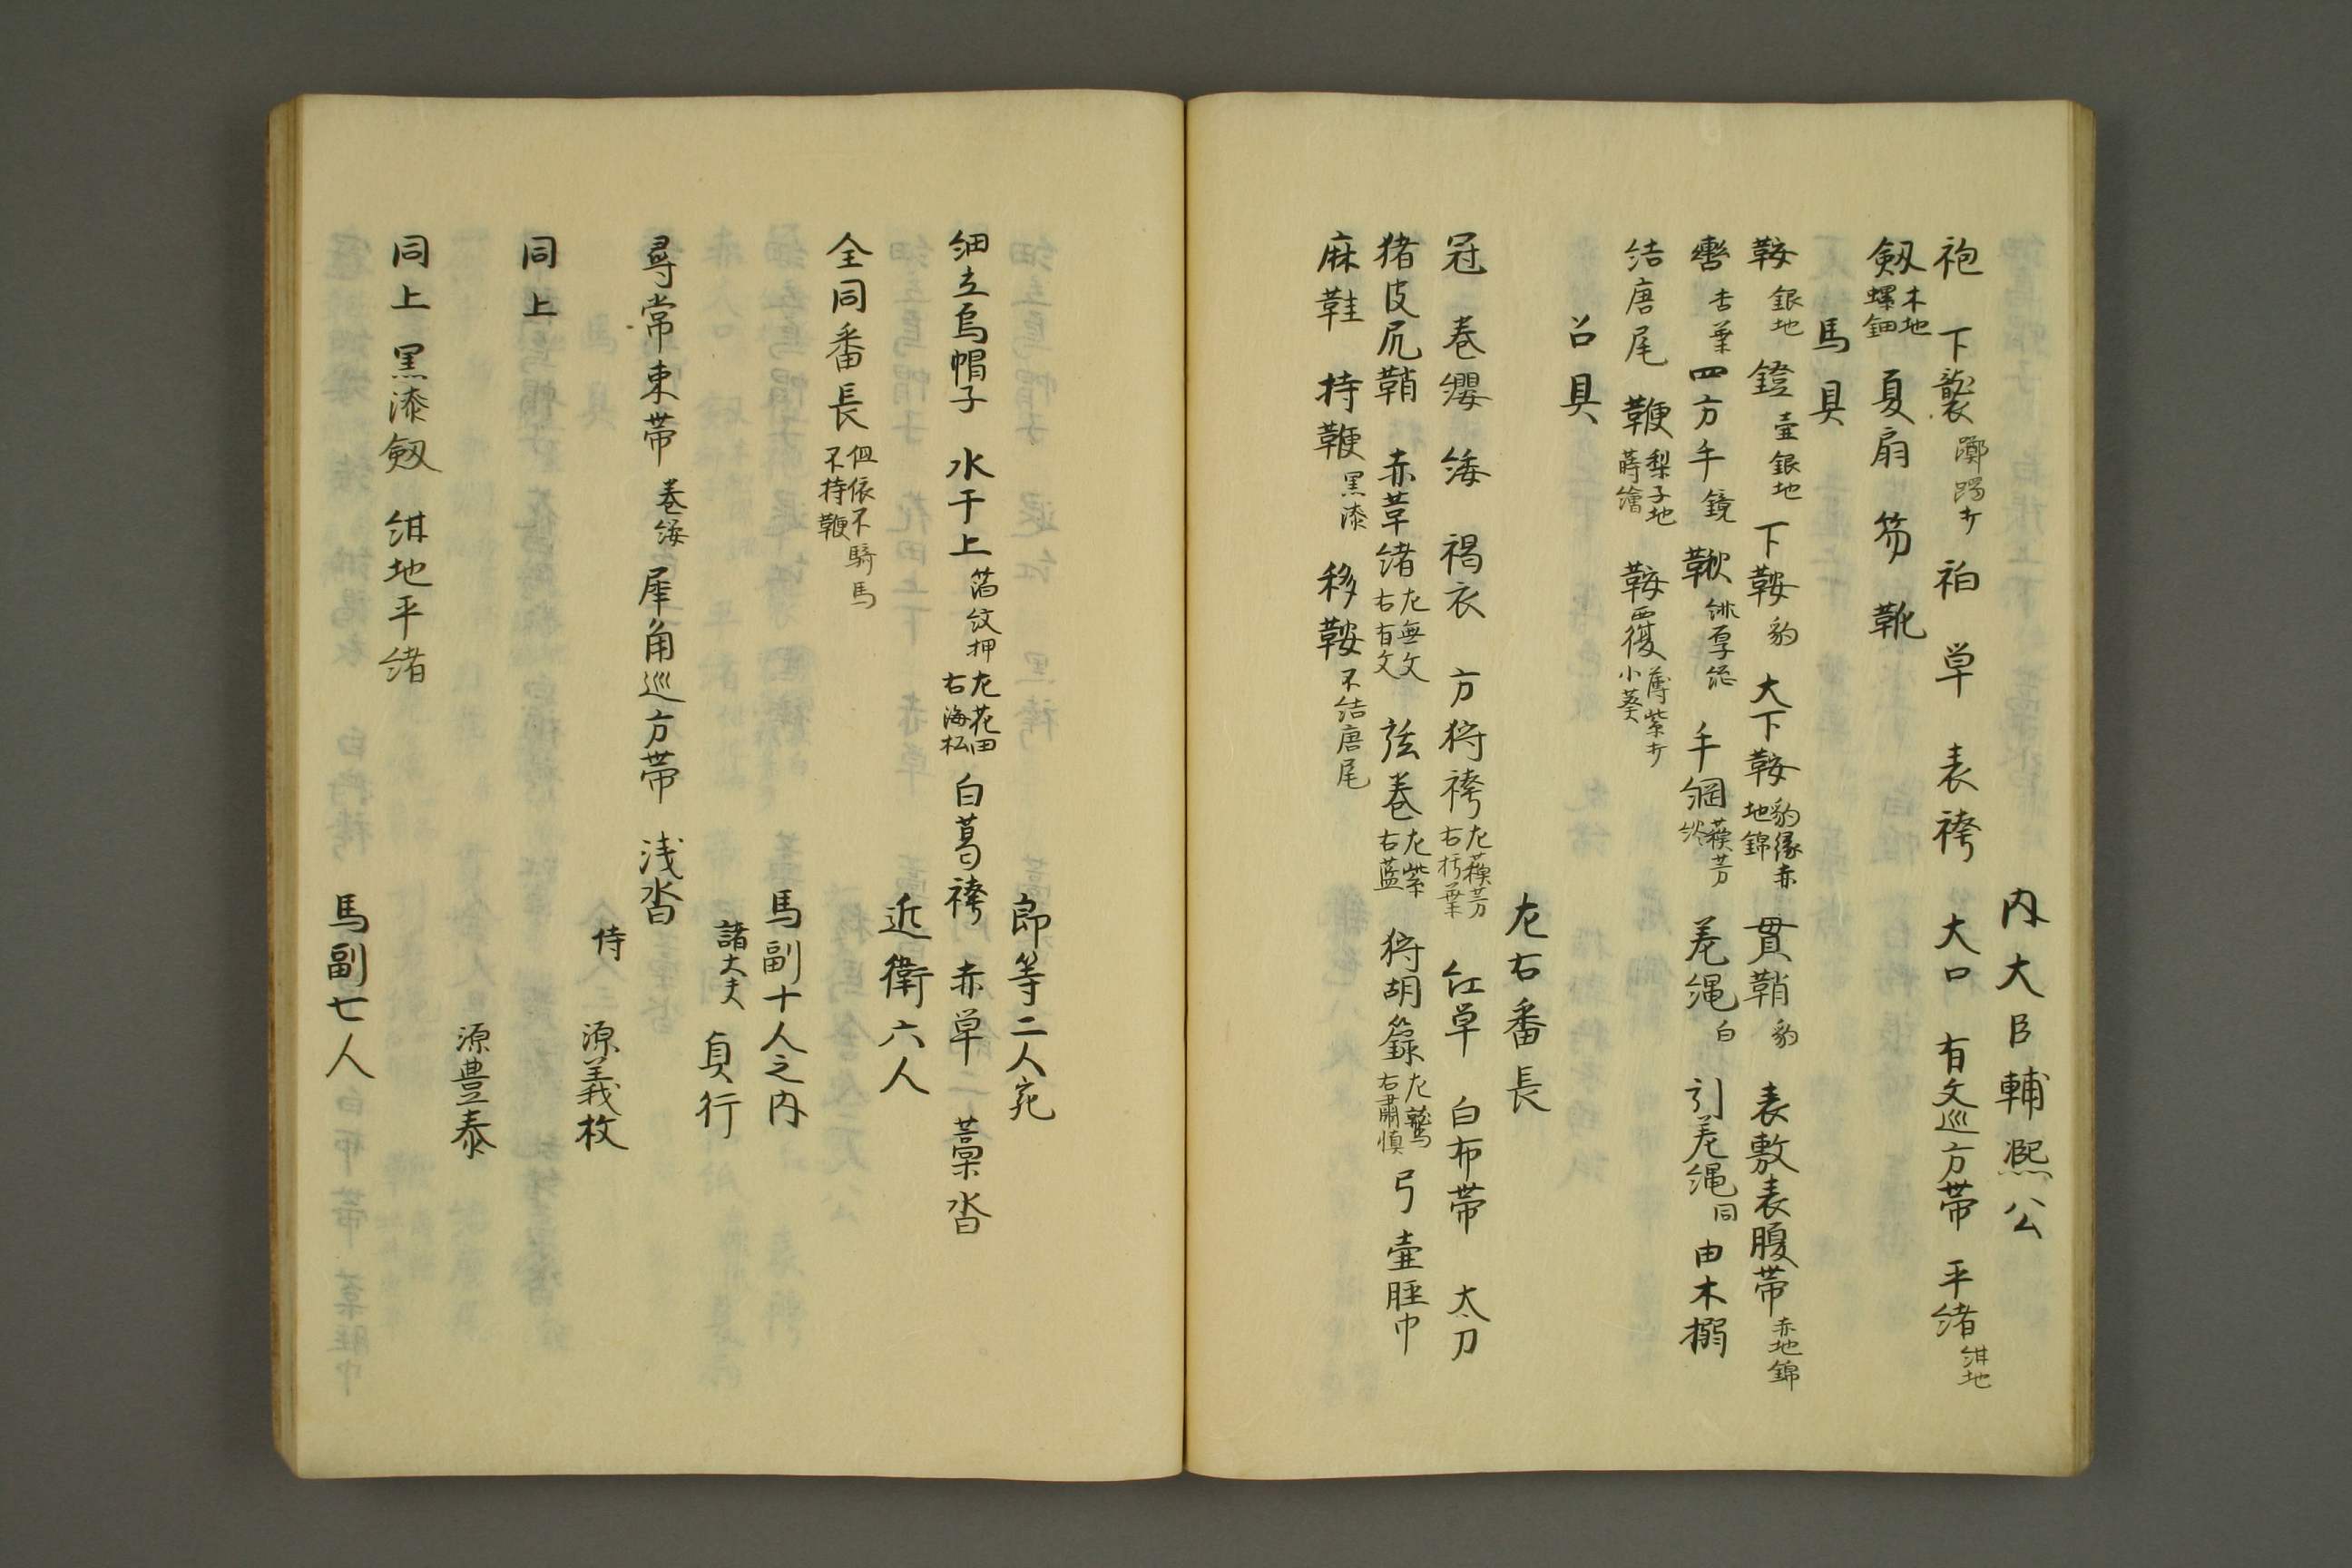 内大臣輔熙公
袍 下襲躑躅 衵 単 表袴 大口 有文巡方帯 平緒紺地
劔木地螺鈿 夏扇 笏 靴
馬具
鞍銀地 鐙壷銀地 下鞍豹 大下鞍豹縁赤地錦 貫鞘豹 表敷表腹帯赤地錦
轡杏葉 四方手鏡 鞦 手綱蘓芳 差縄白 引差縄同 由木搦
結唐尾 鞭梨子地蒔繪 鞍覆薄紫小葵
召具
左右番長
冠 巻纓 緌 褐衣 方狩袴左蘓芳右朽葉 紅単 白布帯 太刀
猪皮尻鞘 赤革緒左無文右有文 弦巻左紫右藍 狩胡籙左鷲右肅慎 弓 壷脛巾
麻鞋 持鞭黒漆 移鞍不結唐尾
郎等二人宛
細立烏帽子 水干上菊紋押左花田右海松 白葛袴 赤単 藁沓
近衛六人
全同番長但依不騎馬不持鞭
馬副十人之内
諸大夫 貞行
尋常束帯巻緌 犀角巡方帯 浅沓
侍 源義枚
同上
源豊泰
同上 黒漆劔 紺地平緒
馬副七人